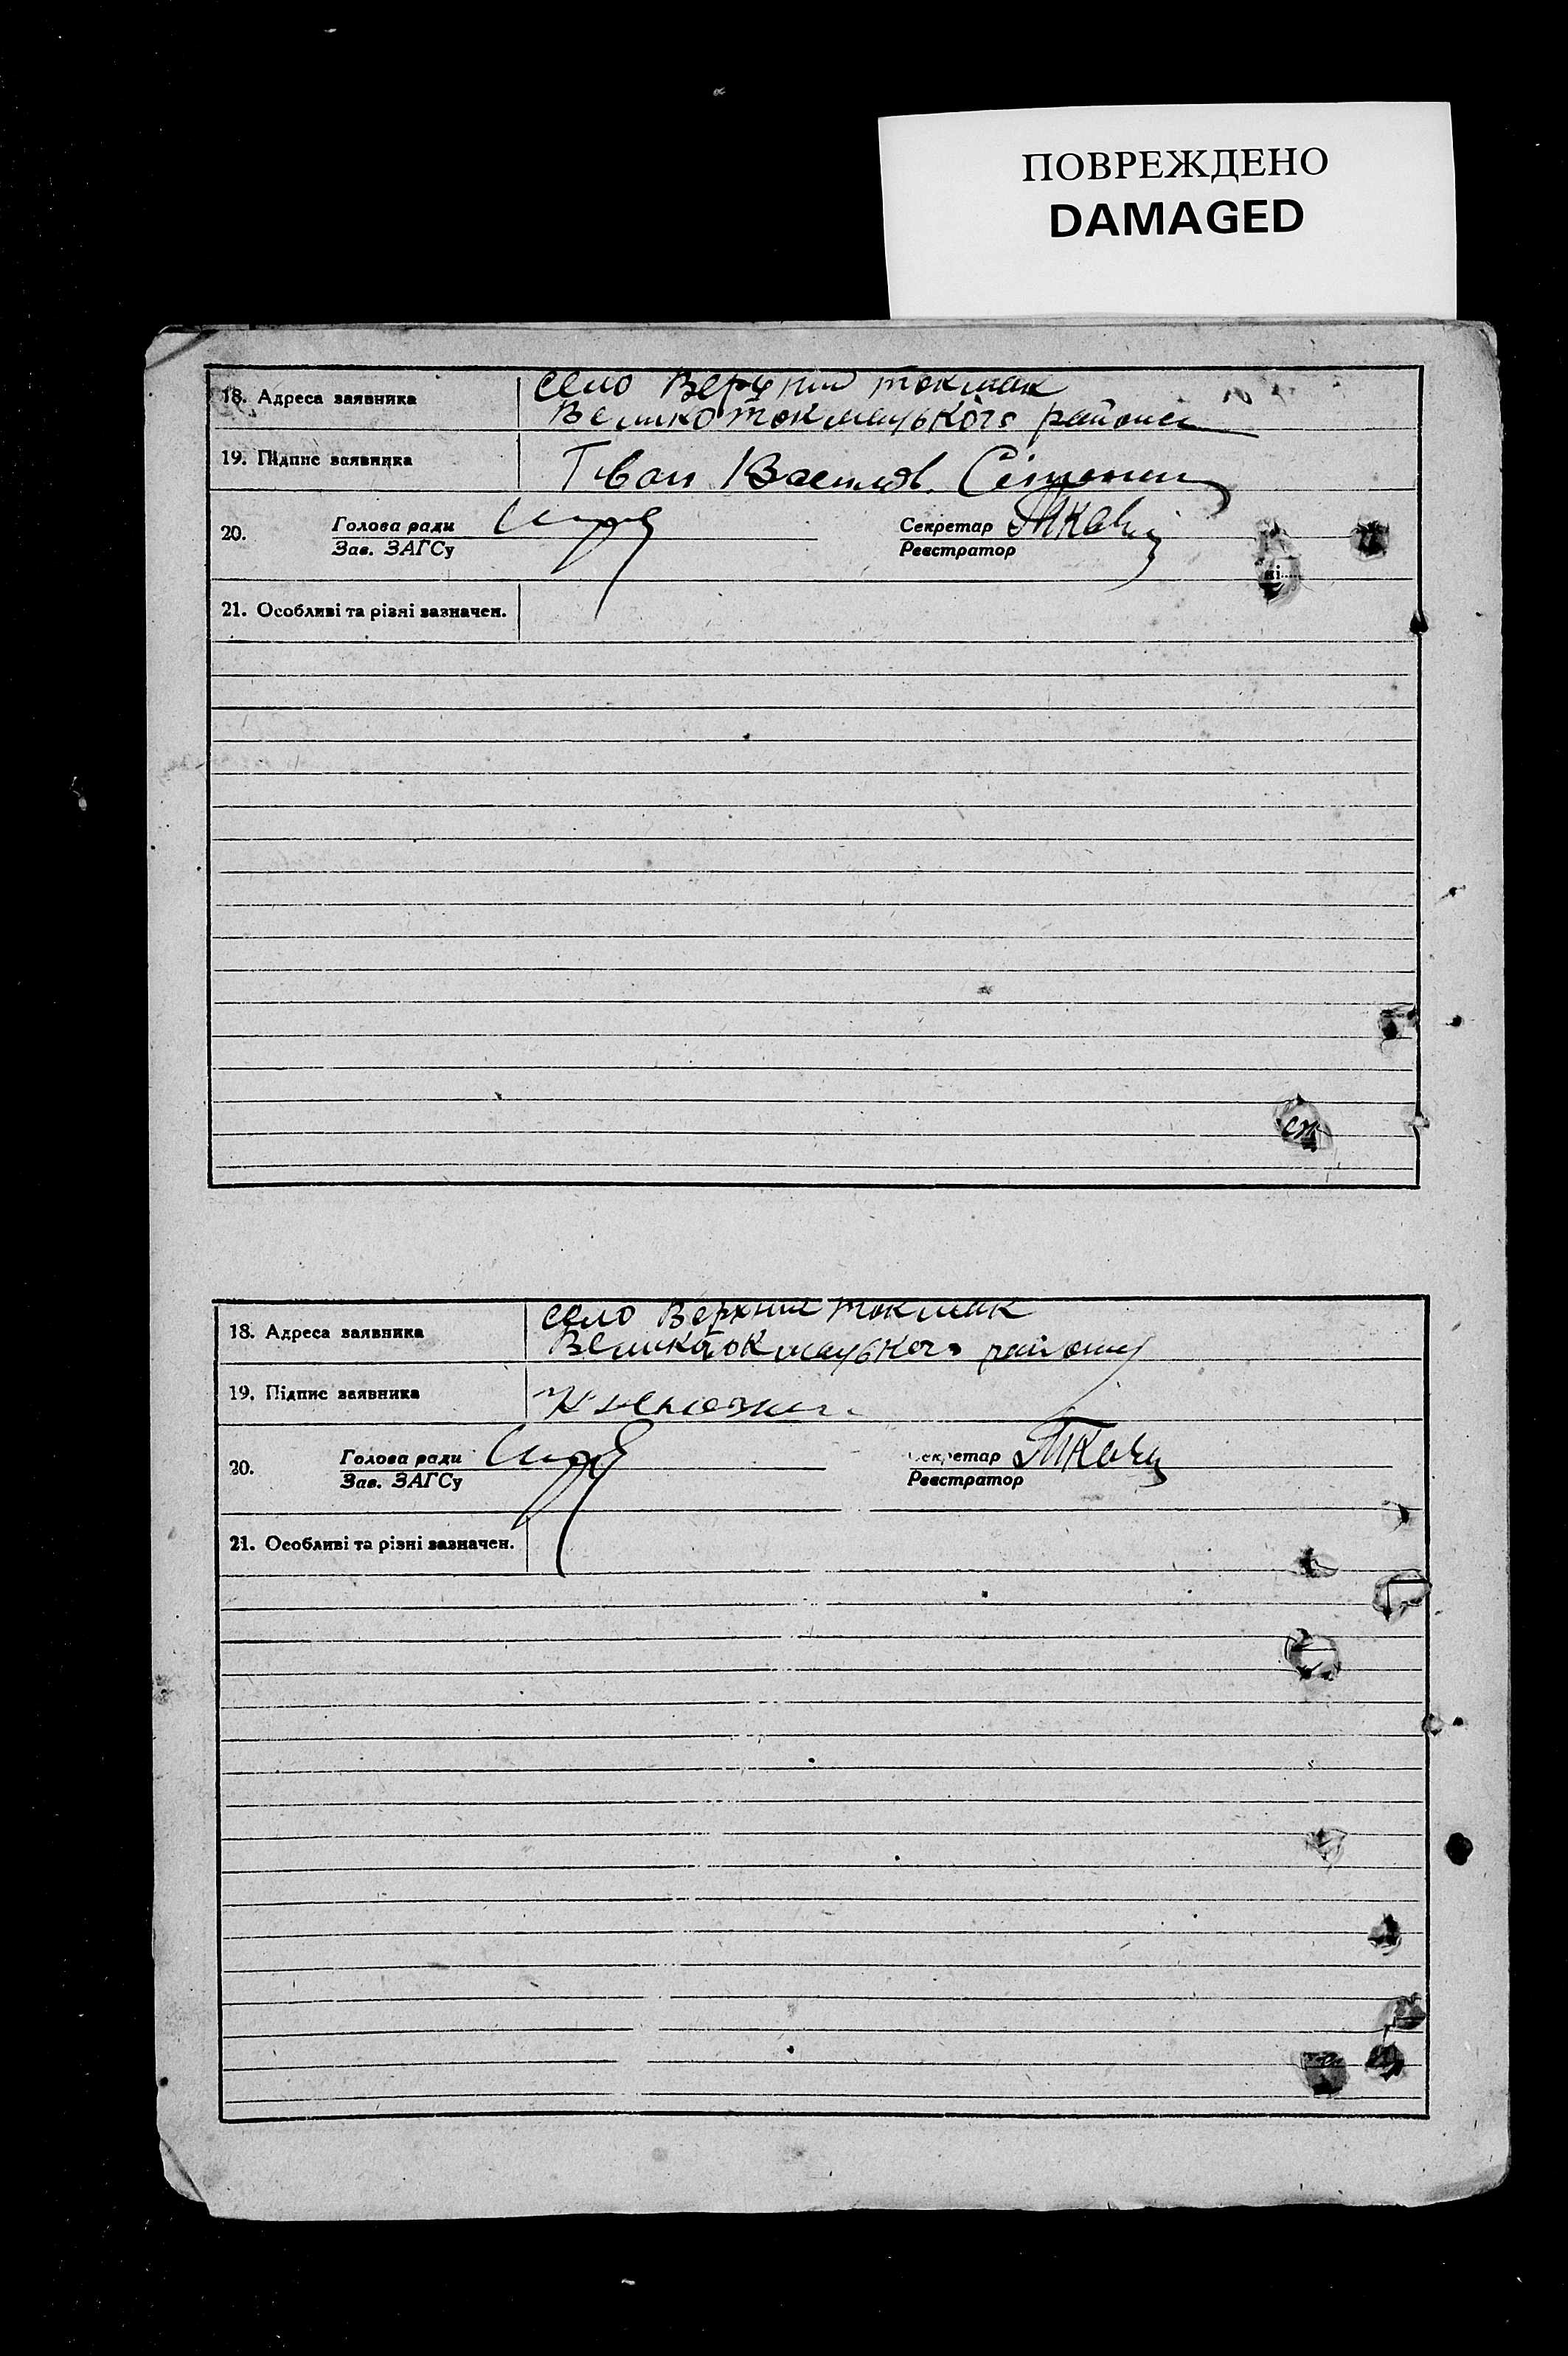 ПОВРЕЖДЕНО
DAMAGED
18. Адреса заявника село Верхний токмак
Великотокмацького района
19. Підпис заявника Іван Васильов.
20. Голова ради Секретар Ткач
Зав. ЗАГСу Реєстратор
21. Особливі та різні зазначен.
18. Адреса заявника село Верхний токмак
Великотокмацького району
19. Підпис заявника
20. Голова ради Секретар Ткач
Зав. ЗАГСу Реєстратор
21. Особливі та різні зазначен.